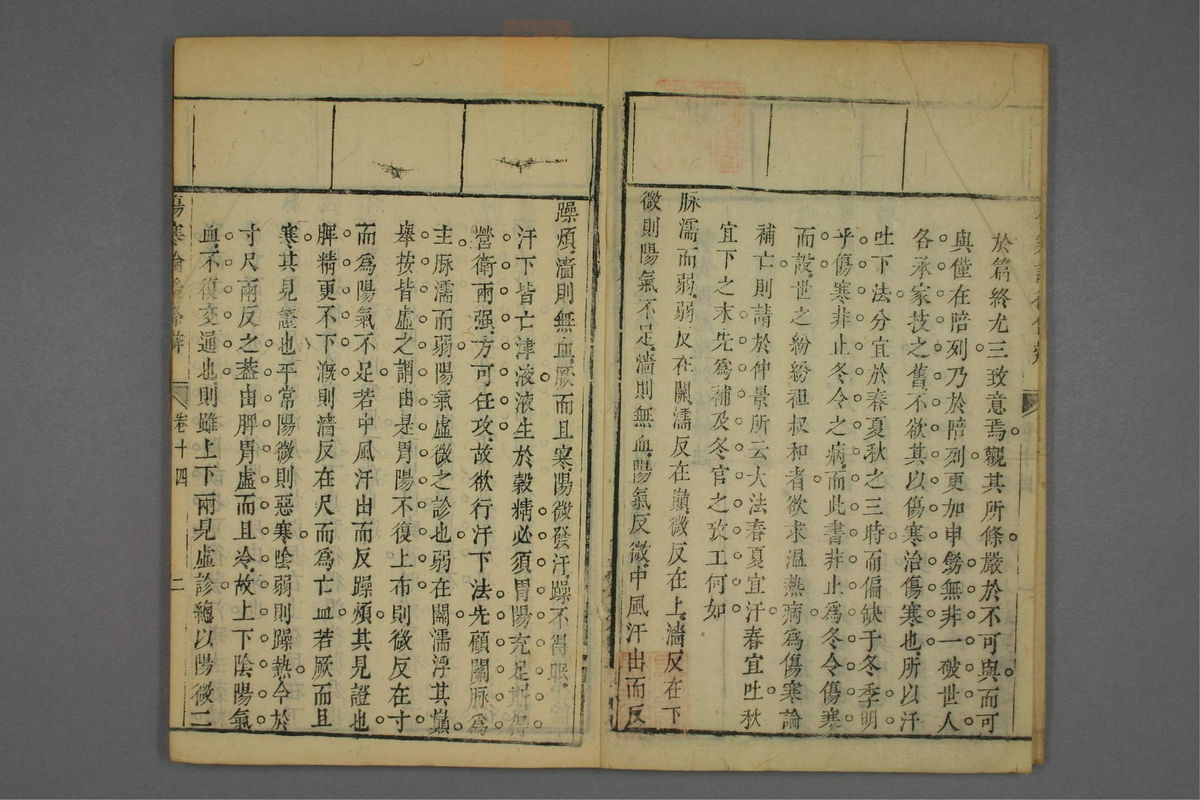 於篇終尤三致意焉觀其所條嚴於不可與而可
與僅在陪列乃於陪列更加申鬯無非一破世人
各承家技之舊不欲其以傷寒治傷寒也所以汗
吐下法分宜於春夏秋之三時而偏缺于冬季明
乎傷寒非止冬令之病而此書非止爲冬令傷寒
而設世之紛紛袒叔和者欲求温熱病爲傷寒論
補亡則請於仲景所云大法春夏宜汗春宜吐秋
宜下之末先爲補及冬官之攷工何如
脉濡而弱弱反在關濡反在巔微反在上濇反在下
微則陽氣不足濇則無血陽氣反微中風汗出而反
躁煩濇則無血厥而且寒陽微發汗躁不得眠
汗下皆亡津液液生於穀精必須胃陽充足斯得
營衛兩强方可任攻故欲行汗下法先顧關脉爲
主脉濡而弱陽氣虛微之診也弱在關濡浮其巔
舉按皆虛之謂由是胃陽不復上布則微反在寸
而爲陽氣不足若中風汗出而反躁煩其見證也
脾精更不下漑則濇反在尺而爲亡血若厥而且
寒其見證也平常陽微則惡寒陰弱則躁熱今於
寸尺兩反之葢由脾胃虛而且冷故上下陰陽氣
血不復交通也則雖上下兩見虛診總以陽微二
傷寒論後條辨
卷十四
二